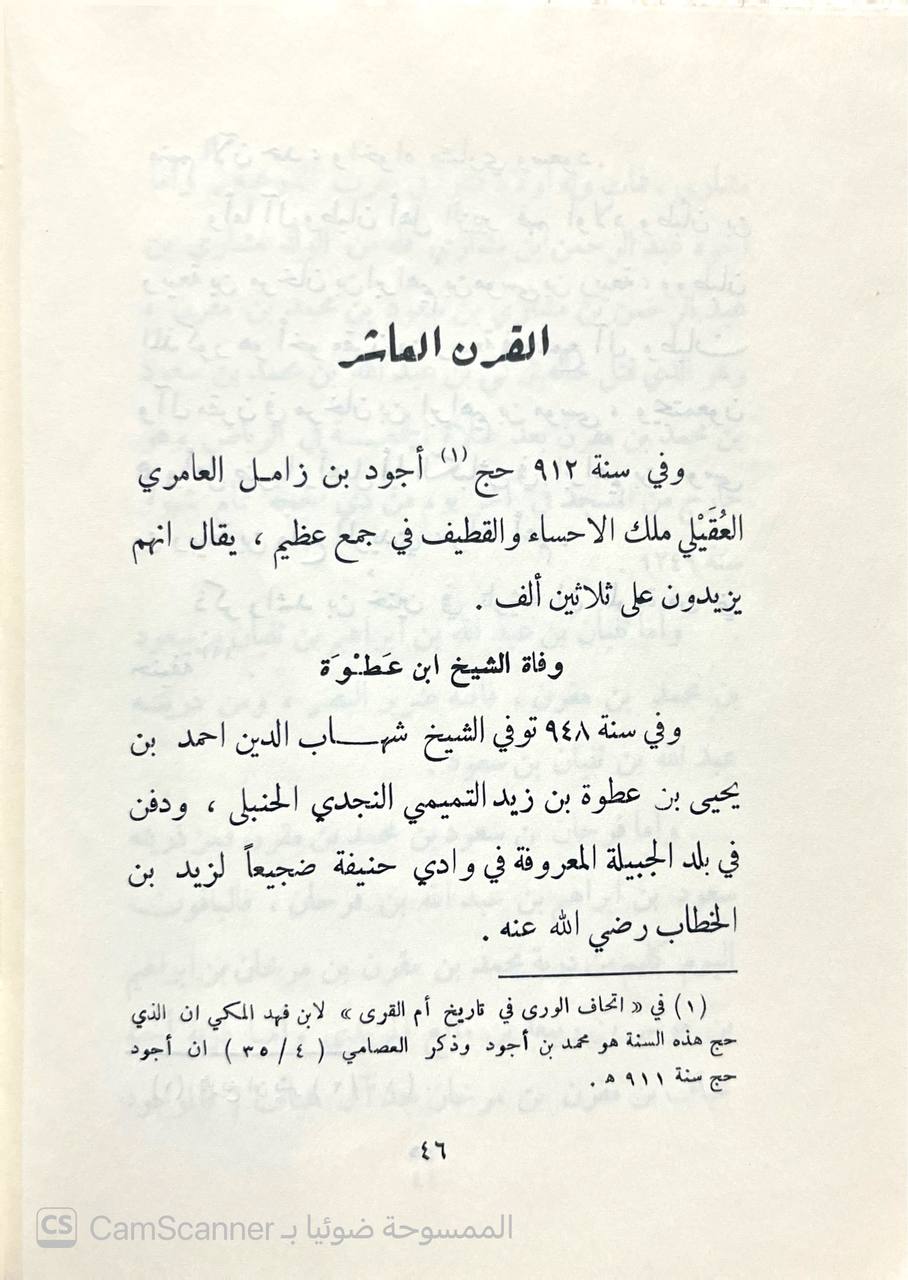 القرن العاشر
وفي سنة ٩١٢ حج (١) أجود بن زامـل العامري
العُقَيْلي ملك الاحساء والقطيف في جمع عظيم ، يقال انهم
يزيدون على ثلاثين ألف .
وفاة الشيخ ابن عَطْوَة
وفي سنة ٩٤٨ توفي الشيخ شهـــاب الدين احمد بن
يحيى بن عطوة بن زيد التميمي النجدي الحنبلى ، ودفن
في بلد الجبيلة المعروفة في وادي حنيفة ضجيعاً لزيد بن
الخطاب رضي الله عنه .
(١) في « اتحاف الورى في تاريخ أم القرى » لابن فهد المكي ان الذي
حج هذه السنة هو محمد بن أجود وذكر العصامي ( ٤ / ٣٥ ) ان أجود
حج سنة ٩١١ ه .
٤٦
CS CamScanner الممسوحة ضوئيا بـ